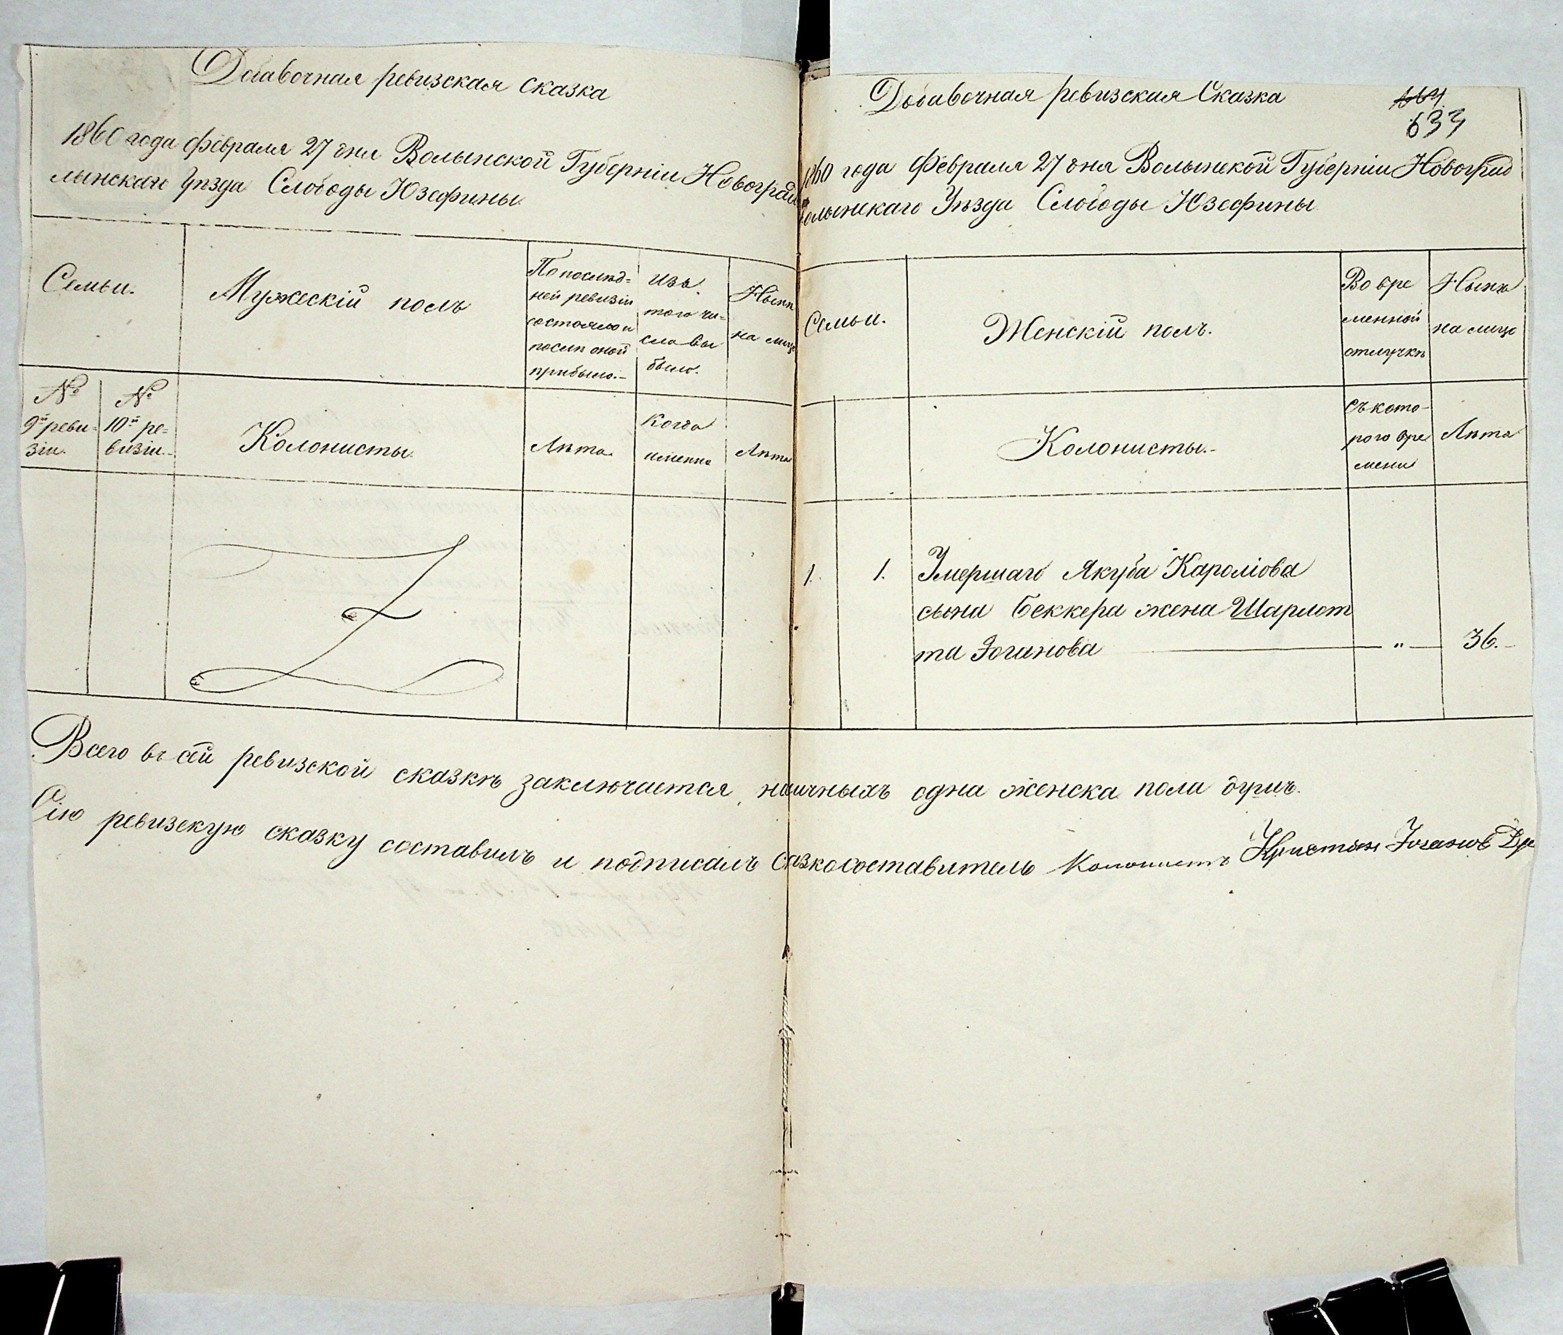 Добавочная ревизская сказка
1860 года Февраля 27 дня Волынской Губерніи Новоград
лынскаго Уѣзда Слободы Юзефины
Семьи.
Мужескій полъ
По послѣд-
ней ревизіи
состояло и
послѣ оной
прибыло.
Изъ
того чи-
сла вы
было.
Нынѣ
на лицо
№
9й реви-
зіи
№
10й ре-
визіи
Колонисты
Лѣта
Когда
именно
Лѣта
Добавочная ревизская Сказка
633
1860 года Февраля 27 дня Волынской Губерніи Новоград
волынскаго Уѣзда Слободы Юзефины
Семьи.
Женскій полъ.
Во вре
менной
отлучкѣ
Нынѣ
на лицо
Колонисты.
съ кото-
рого вре
мени
Лѣта
1. 1. Умершаго Якуба Кароліова
сына Беккера жена Шарлот
та Іоганова — " — 36.
Всего въ сей ревизской сказкѣ заключается наличныхъ одна женска пола душъ.
Сію ревизскую сказку составилъ и подписалъ сказкосоставитель Колонистъ Христьян Іоганов